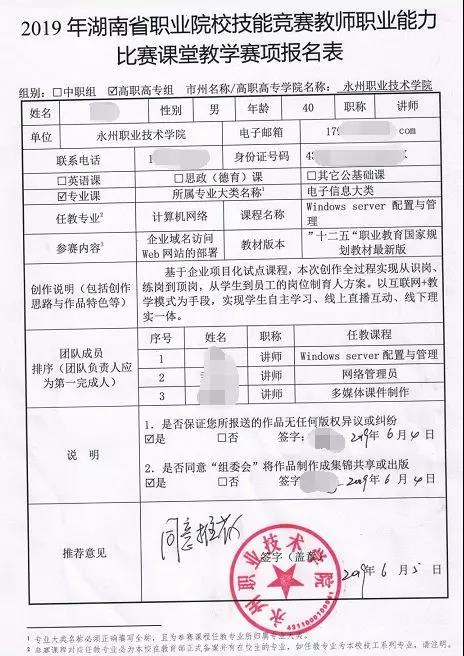 2019 年湖南省职业院校技能竞赛教师职业能力
比赛课堂教学赛项报名表
组别：□中职组 ☑高职高专组 市州名称/高职高专学院名称： 永州职业技术学院
姓名 性别 男 年龄 40 职称 讲师
单位 永州职业技术学院 电子邮箱 179 com
联系电话 1 身份证号码 43 X
□英语课 □思政（德育）课 □其它公基础课
☑专业课 所属专业大类名称¹ 电子信息大类
任教专业² 计算机网络 课程名称 Windows server 配置与管理
参赛内容³ 企业域名访问 Web 网站的部署 教材版本 "十二五"职业教育国家规划教材最新版
创作说明（包括创作思路与作品特色等）
基于企业项目化试点课程，本次创作全过程实现从识岗、
练岗到顶岗，从学生到员工的岗位制育人方案。以互联网+教
学模式为手段，实现学生自主学习、线上直播互动、线下理
实一体。
团队成员
排序（团队负责人应
为第一完成人）
序号 姓名 职称 任教课程
1 讲师 Windows server 配置与管理
2 讲师 网络管理员
3 讲师 多媒体课件制作
说 明
1．是否保证您所报送的作品无任何版权异议或纠纷
☑是 □否 签字： 2019年 6 月 4 日
2．是否同意"组委会"将作品制作成集锦共享或出版
☑是 □否 签字 2019年 6 月 4 日
推荐意见
同意推荐
签字（盖章）
2019年 6 月 5 日
永州职业技术学院
4311000100991
¹ 专业大类名称必须正确填写全称，且为参赛课程任教专业所归属专业大类。
² 参赛课程对应任教专业必为本校在教育部正式备案并有在校生的专业，如任教专业为本校技工系列专业，请注明。